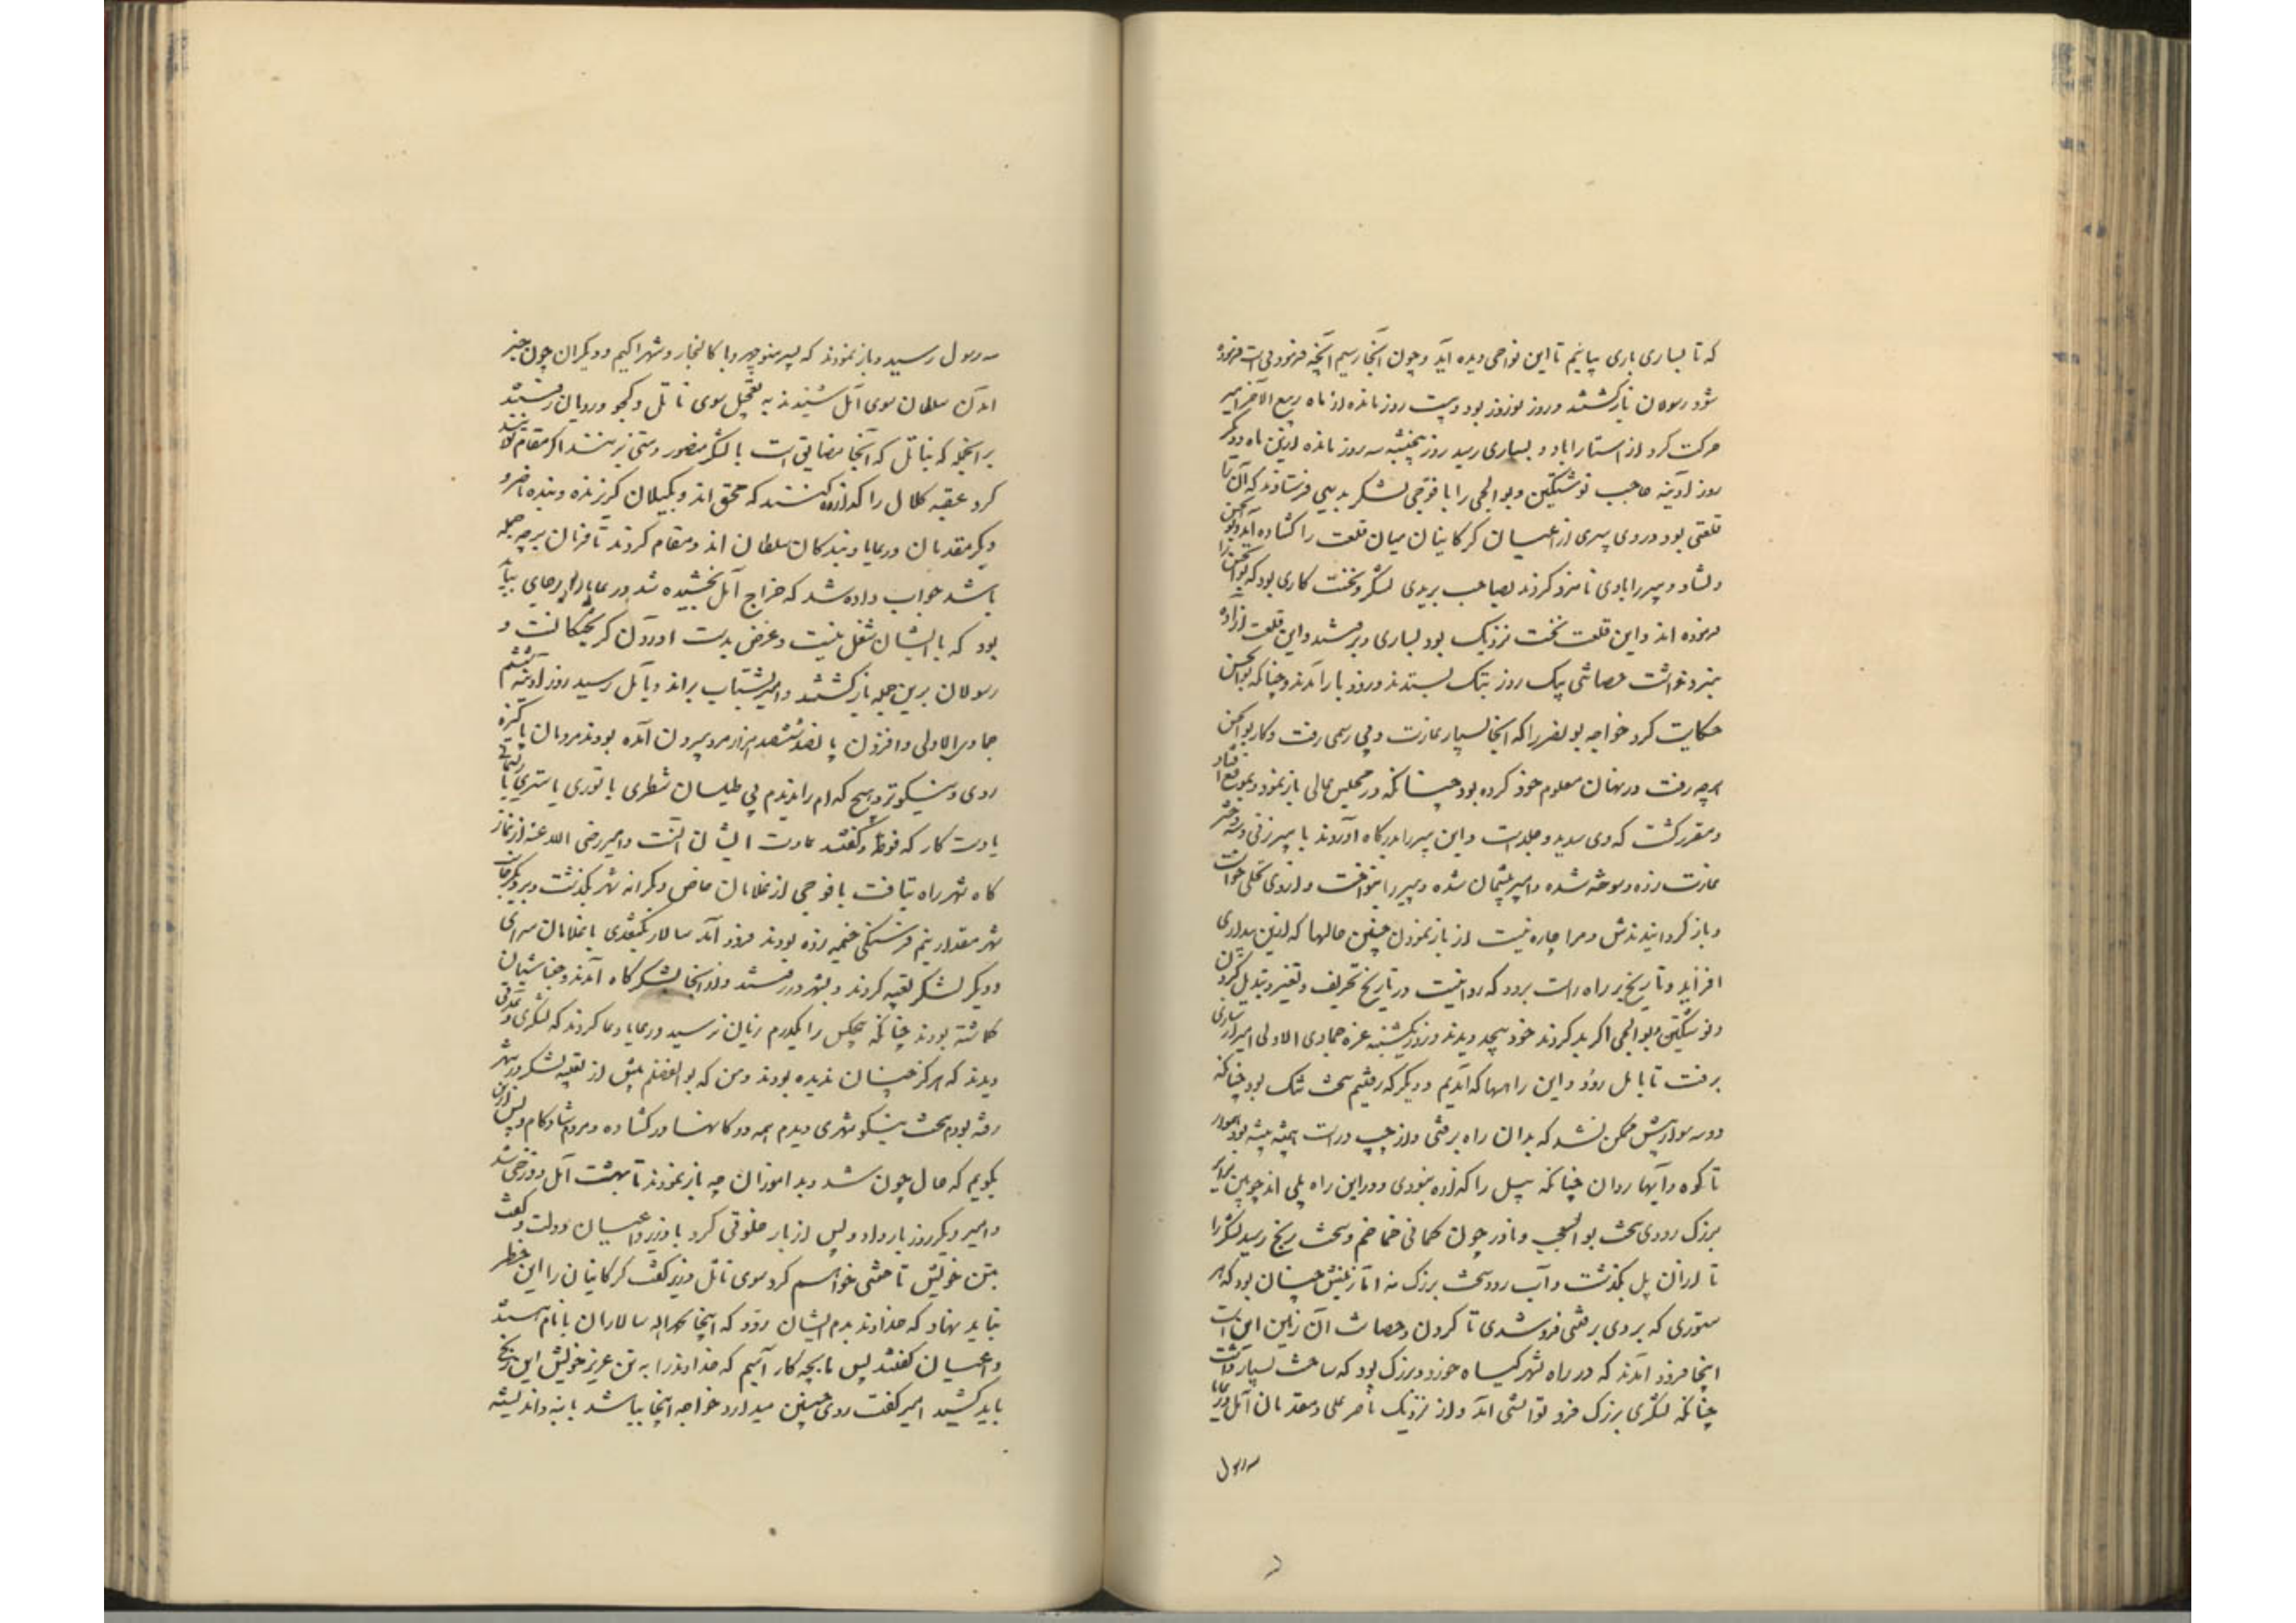 که تا بساری باری بیائیم تا این نواحی دیده آید و چون آنجا رسیم آنچه فرمودنی است فرموده
شود رسولان بازگشتند و روز نوروز بود و بیست روز مانده از ماه ربیع الآخر امیر
حرکت کرد از استاراباد و بساری رسید روز پنجشنبه سه روز مانده ازین ماه و دیگر
روز آدینه حاجب نوشتکین ولوالجی را با فوجی لشکر بدیهی فرستادند که آن را
قلعتی بود و در وی پیری از اعیان کرکانیان میان قلعت را کشاده آید و بوالحسن
دلشاد دبیر را نامزد کردند بصاحب بریدی لشکر و نخست کاری بود که بوالحسن را
فرموده اند و این قلعت سخت نزدیک بود بساری و برفتند و این قلعت از آن
نداشت حصانتی بیک روز بتک بستدند و زود باز آمدند و چنانکه بوالحسن
حکایت کرد خواجه بونصر را که آنجا بسیار غارت و بی رسمی رفت و کار بوالحسن
هرچه رفت در نهان معلوم خود کرده بود چنانکه در مجلس عالی باز نمود و بموقع افتاد
و مقرر کشت که وی سدید و جلد است و این پیر را بدرکاه آوردند با پیرزنی و سه دختر
غارت زده و سوخته شده و امیر پشیمان شده و پیر را بنواخت و از وی بحلی خواست
و باز کردانیدندش و مرا چاره نیست از باز نمودن چنین حالها که ازین بیداری
افزاید و تاریخ بر راه راست برود که روا نیست در تاریخ تحریف و تغییر و تبدیل کردن
و نوشتکین ولوالجی اگر بد کردند خود بیچند و دیدند و روز یکشنبه غره جمادی الاولی امیر از ساری
برفت تا بآمل رود و این راهها که آمدیم و دیگر که رفتیم سخت تنک بود چنانکه
دو سه سوار بیش ممکن نشد که بدان راه برفتی و از چپ و راست همه بیشه بود هموار
تا کوه و آبها روان چنانکه پیل را گذاره نبودی و در این راه پلی آمد چوبین بزرگ
بزرگ رودی سخت بوالعجب و نادر چون کمانی خماخم و سخت رنج رسید لشکر را
تا از آن پل بگذشت و آب رود سخت بزرگ نه اما زمینش چنان بود که هر
ستوری که بر وی برفتی فرو شدی تا گردن و حصانت آن زمین این است
اینجا فرود آمدند که در راه شهر کیاه خورد و بزرگ بود که ساحت بسیار داشت
چنانکه لشکری بزرگ فرو توانستی آمد و از نزدیک ناصر علی و مقدمان آمل و رعایا
سه رسول
سه رسول رسید و باز نمودند که پسر منوچهر و باکالنجار و شهراکیم و دیگران چون خبر
آمدن سلطان سوی آمل شنیدند به تعجیل سوی ناتل و کجو و رویان رفتند
بر آنجمله که بناتل که آنجا مضایقی است با لشکر منصور دستی بزنند اگر مقام نتوانند
کرد عقبه کلال را گذاره کنند که مخف اند و بگیلان گریزند و بنده ناصر و
دیگر مقدمان و رعایا بندکان سلطان اند و مقام کردند تا فرمان بر چه جمله
باشد جواب داده شد که خراج آمل بخشیده شد و رعایا را بر جای بباید
بود که با ایشان شغل نیست و غرض بدست آوردن گریختگانست و
رسولان برین جمله بازگشتند و امیر بشتاب براند و بآمل رسید روز آدینه ششم
جمادی الاولی و افزون پانصد ششصد هزار مرد بیرون آمده بودند مردمان پاکیزه
روی و نیکوتر و هیچ کدام را ندیدم بی طیلسان شطری یا توری یا ستری یا ریسمانی
یا دست کار که فوطه و گفتند عادت ایشان آنست و امیر رضی الله عنه از نماز
گاه شهر راه بتافت با فوجی از غلامان خاص و بکرانه شهر بگذشت و بر دیگر جانب
شهر مقدار نیم فرسنگی خیمه زده بودند فرود آمد سالار بکتغدی با غلامان سرای
و دیگر لشکر تعبیه کردند و بشهر در رفتند و از آنجا بلشکرگاه آمدند و خباشیان
گماشته بودند چنانکه هیچکس را یکدرم زیان نرسید و رعایا دعا کردند که لشکری و عدتی
دیدند که هرگز چنان ندیده بودند و من که بوالفضلم پیش از تعبیه لشکر در شهر
رفته بودم سخت نیکو شهری دیدم همه دوکانها در کشاده و مردم شادکام و پس ازین
بگویم که حال چون شد و بدآموزان چه باز نمودند تا بهشت آمل دوزخی شد
و امیر دیگر روز بار داد و پس از بار خلوتی کرد با وزیر و اعیان دولت و گفت
بتن خویش تاختنی خواهم کرد سوی ناتل وزیر گفت کرکانیان را این خطر
نباید نهاد که خداوند بدم ایشان رود که اینجا بحمدالله سالاران با نام هستند
و اعیان گفتند پس ما بچه کار آئیم که خداوند را به تن عزیز خویش این رنج
باید کشید امیر گفت روی چنین میدارد خواجه اینجا بباشد با بنه و اندیشه